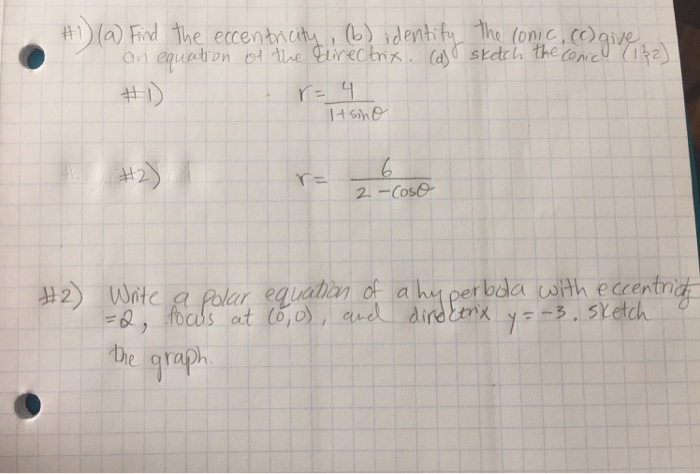 #1) (a) Find the eccentricity, (b) identify the conic, (c) give
an equation of the directrix. (d) sketch the conic (1&2)
#1) r = 4
1+sinθ
#2) r = 6
2-cosθ
#2) Write a polar equation of a hyperbola with eccentricity
=2, focus at (0,0), and directrix y=-3. sketch
the graph.